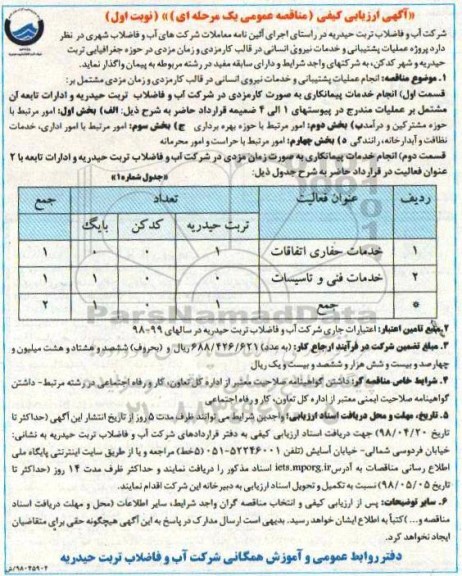 «آگهی ارزیابی کیفی (مناقصه عمومی یک مرحله ای)» (نوبت اول)
شرکت آب و فاضلاب تربت حیدریه در راستای اجرای آئین نامه معاملات شرکت های آب و فاضلاب شهری در نظر
دارد پروژه عملیات پشتیبانی و خدمات نیروی انسانی در قالب کارمزدی و زمان مزدی در حوزه جغرافیایی تربت
حیدریه و شهر کدکن، به شرکتهای واجد شرایط و دارای سابقه مفید در رشته مربوطه به پیمان واگذار نماید.
۱. موضوع مناقصه: انجام عملیات پشتیبانی و خدمات نیروی انسانی در قالب کارمزدی و زمان مزدی مشتمل بر:
قسمت اول) انجام خدمات پیمانکاری به صورت کارمزدی در شرکت آب و فاضلاب تربت حیدریه و ادارات تابعه آن
مشتمل بر عملیات مندرج در پیوستهای ۱ الی ۴ ضمیمه قرارداد حاضر به شرح ذیل: الف) بخش اول: امور مرتبط با
حوزه مشترکین و درآمد ب) بخش دوم: امور مرتبط با حوزه بهره برداری ج) بخش سوم: امور مرتبط با امور اداری، خدمات
نظافت و آبدارخانه، رانندگی د) بخش چهارم: امور مرتبط با حراست و امور محرمانه
قسمت دوم) انجام خدمات پیمانکاری به صورت زمان مزدی در شرکت آب و فاضلاب تربت حیدریه و ادارات تابعه با ۲
عنوان فعالیت در قرارداد حاضر به شرح جدول ذیل: «جدول شماره ۱»
ردیف عنوان فعالیت تعداد جمع
تربت حیدریه کدکن بایگ
۱ خدمات حفاری اتفاقات ۱ ۰ ۰ ۱
۲ خدمات فنی و تاسیسات ۰ ۰ ۱ ۱
* جمع ۱ ۰ ۱ ۲
۲. منبع تامین اعتبار: اعتبارات جاری شرکت آب و فاضلاب تربت حیدریه در سالهای ۹۹-۹۸
۳. مبلغ تضمین شرکت در فرآیند ارجاع کار: (به عدد) ۶۸۸/۴۴۶/۶۲۱ ریال و (بحروف) ششصد و هشتاد و هشت میلیون و
چهارصد و بیست و شش هزار و ششصد و بیست و یک ریال
۴. شرایط خاص مناقصه گر: داشتن گواهینامه صلاحیت معتبر از اداره کل تعاون، کار و رفاه اجتماعی در رشته مرتبط- داشتن
گواهینامه صلاحیت ایمنی معتبر از اداره کل تعاون، کار و رفاه اجتماعی
۵. تاریخ، مهلت و محل دریافت اسناد ارزیابی: واجدین شرایط می توانند ظرف مدت ۵ روز از تاریخ انتشار این آگهی (حداکثر تا
تاریخ ۹۸/۰۴/۲۰) جهت دریافت اسناد ارزیابی کیفی به دفتر قراردادهای شرکت آب و فاضلاب تربت حیدریه به نشانی:
خیابان فردوسی شمالی- خیابان آسایش (تلفن ۵۲۲۴۶۰۰۱-۰۵۱ (۵خط) مراجعه و یا از طریق سایت اینترنتی پایگاه ملی
اطلاع رسانی مناقصات به آدرس iets.mporg.ir اسناد مذکور را دریافت نمایند و حداکثر ظرف مدت ۱۴ روز (حداکثر تا
تاریخ ۹۸/۰۵/۰۵) نسبت به تکمیل و تحویل اسناد ارزیابی به دبیرخانه این شرکت اقدام نمایند.
۶. سایر توضیحات: پس از ارزیابی کیفی و انتخاب مناقصه گران واجد شرایط، سایر اطلاعات (محل و مهلت دریافت اسناد
مناقصه و...) کتباً به اطلاع ایشان خواهد رسید. بدیهی است ارسال مدارک در پاسخ به این آگهی هیچگونه حقی برای متقاضیان
ایجاد نخواهد کرد.
دفتر روابط عمومی و آموزش همگانی شرکت آب و فاضلاب تربت حیدریه
ParsNamadData